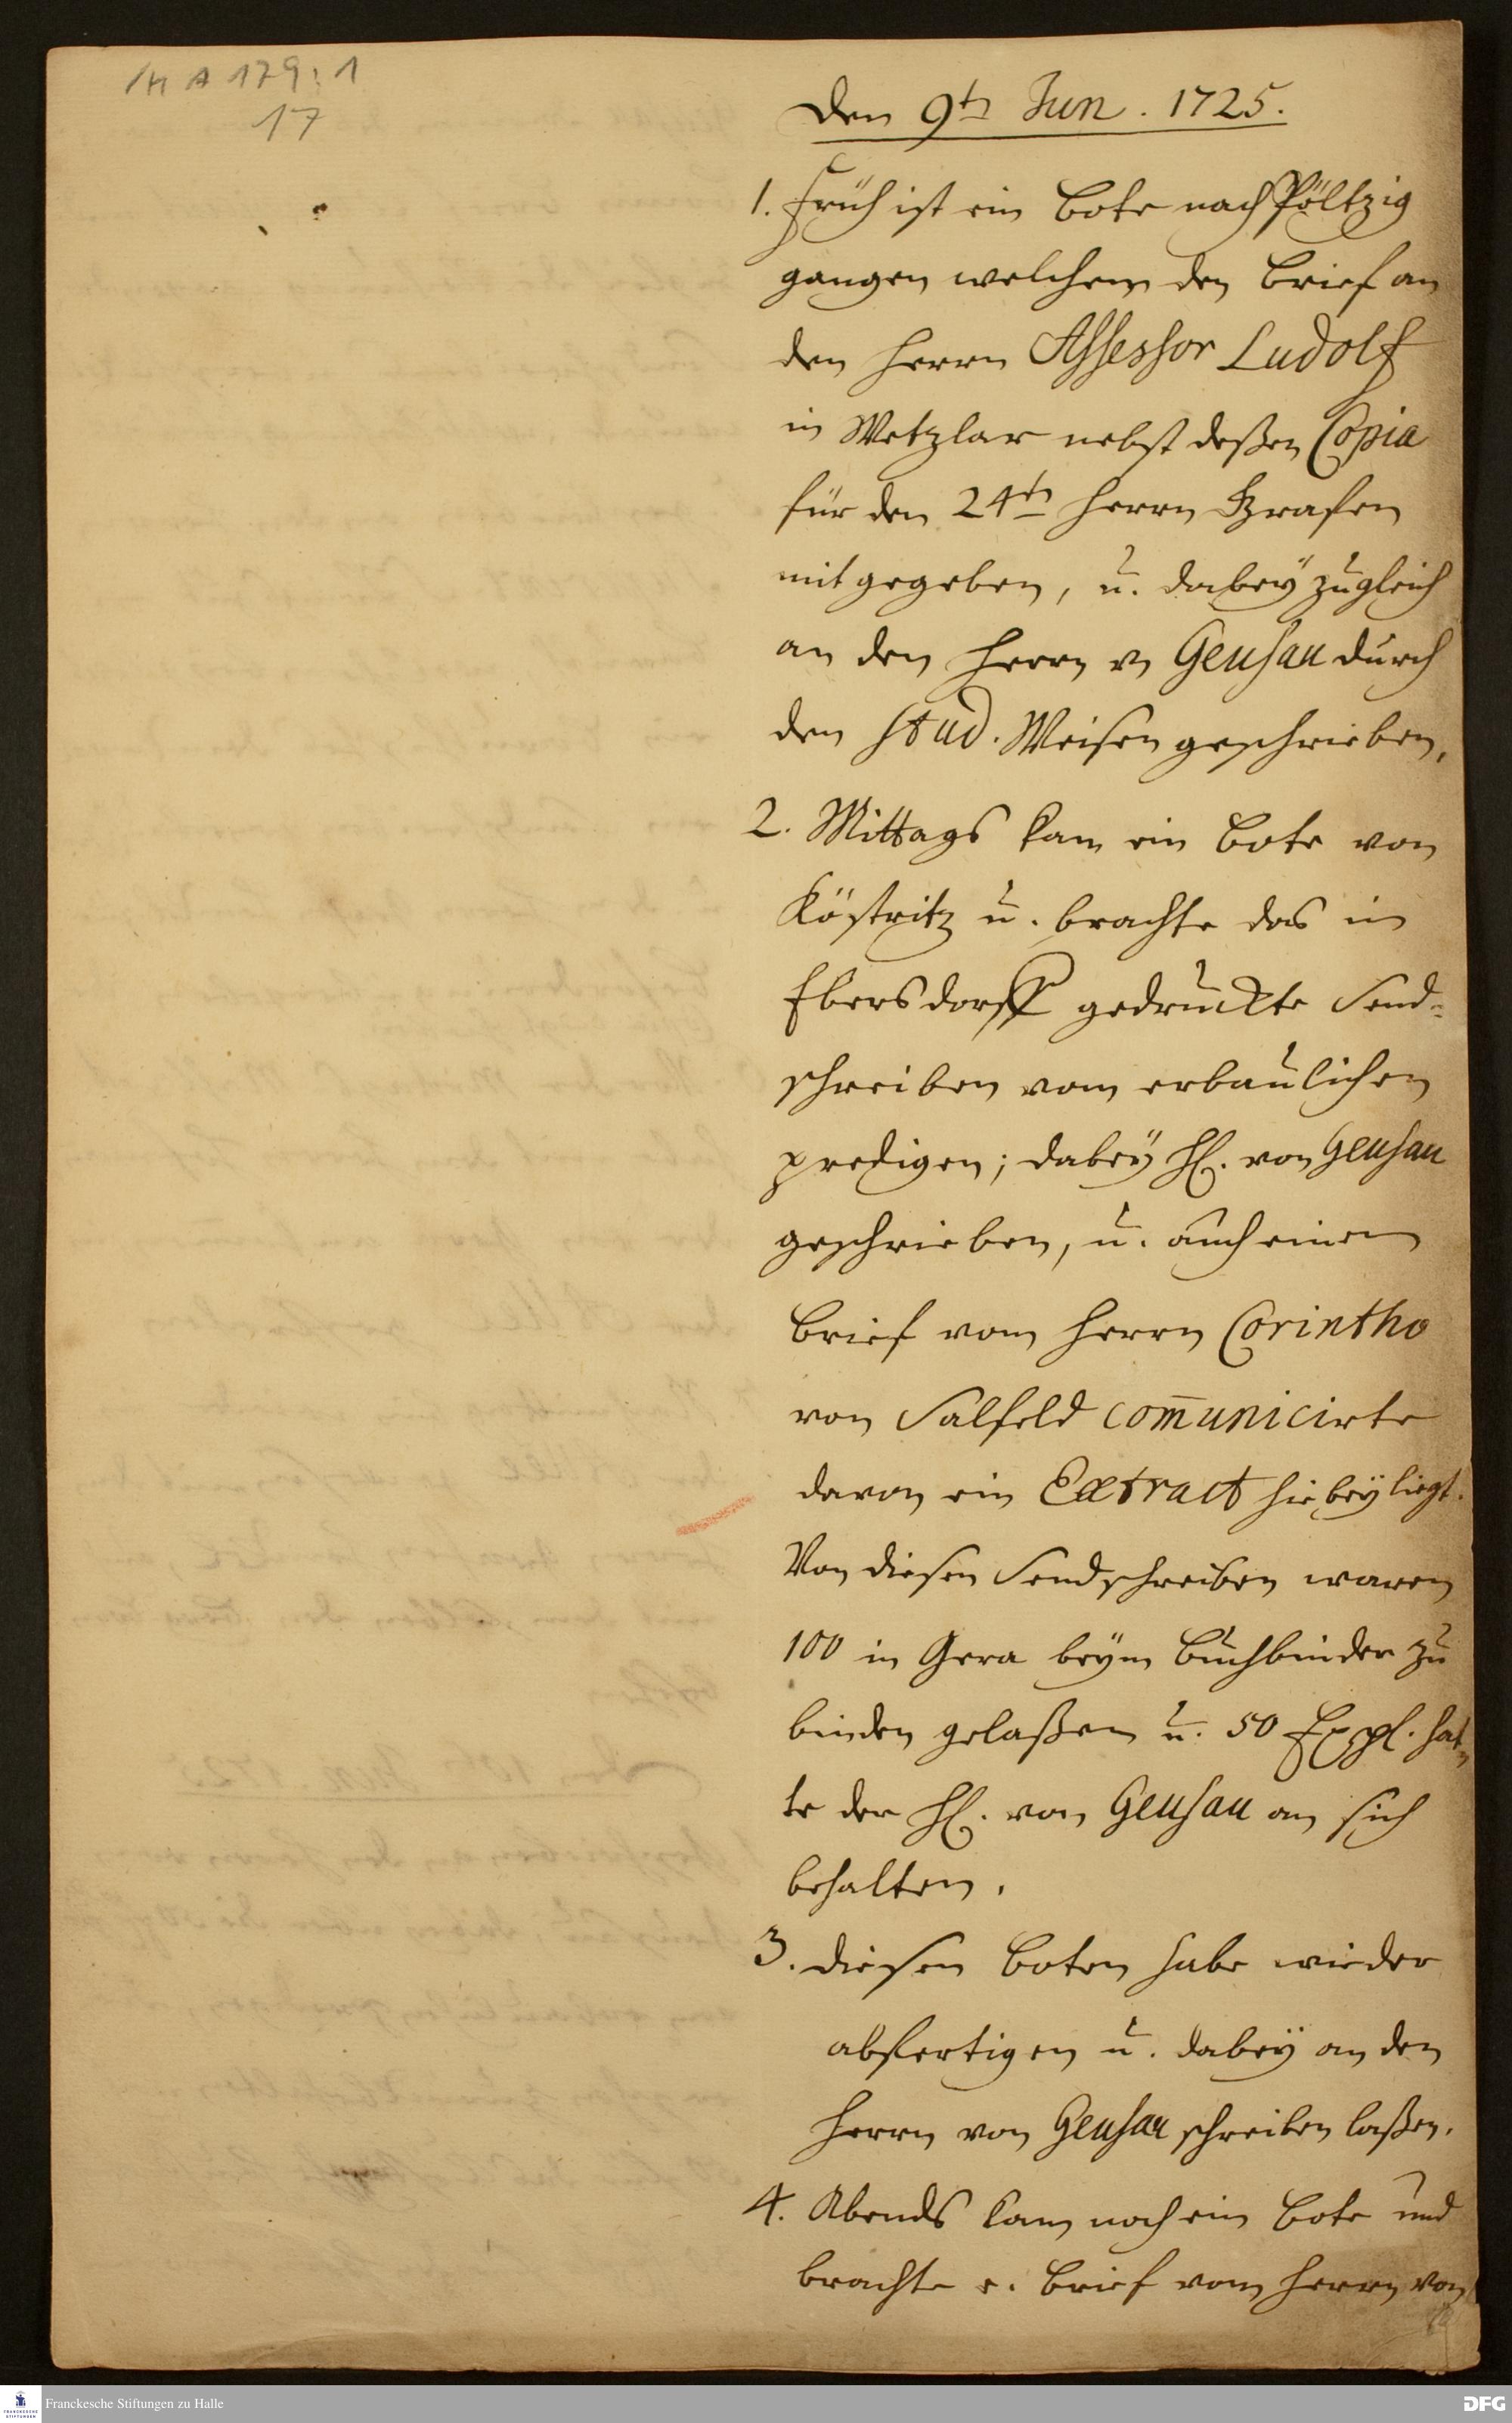 HA 179:1
17
Den 9ten Jun. 1725.
1. Früh ist ein Bote nach Pöltzig
gangen welchem den Brief an
den Herrn Assessor Ludolf
in Wetzlar nebst deßen Copia
für den 24ten Herrn Grafen
mitgegeben, u. dabey zugleich
an den Herrn v Geusau durch
den stud. Weisen geschrieben,
2. Mittags kam ein Bote von
Köstritz u. brachte das in
Ebersdorff gedruckte Send-
schreiben vom erbaulichen
predigen; dabey H. von Geusau
geschrieben, u. auch einen
Brief vom Herrn Corintho
von Salfeld com̄unicirte
davon ein Extract hiebey liegt.
Von diesen Sendschreiben waren
100 in Gera beym Buchbinder zu
binden gelaßen u. 50 Expl. hat-
te der H. von Geusau an sich
behalten.
3. Diesen Boten habe wieder
abfertigen u. dabey an den
Herrn von Geusau schreiben laßen.
4. Abends kam noch ein Bote und
brachte e. Brief vom Herrn von
Franckesche Stiftungen zu Halle
DFG